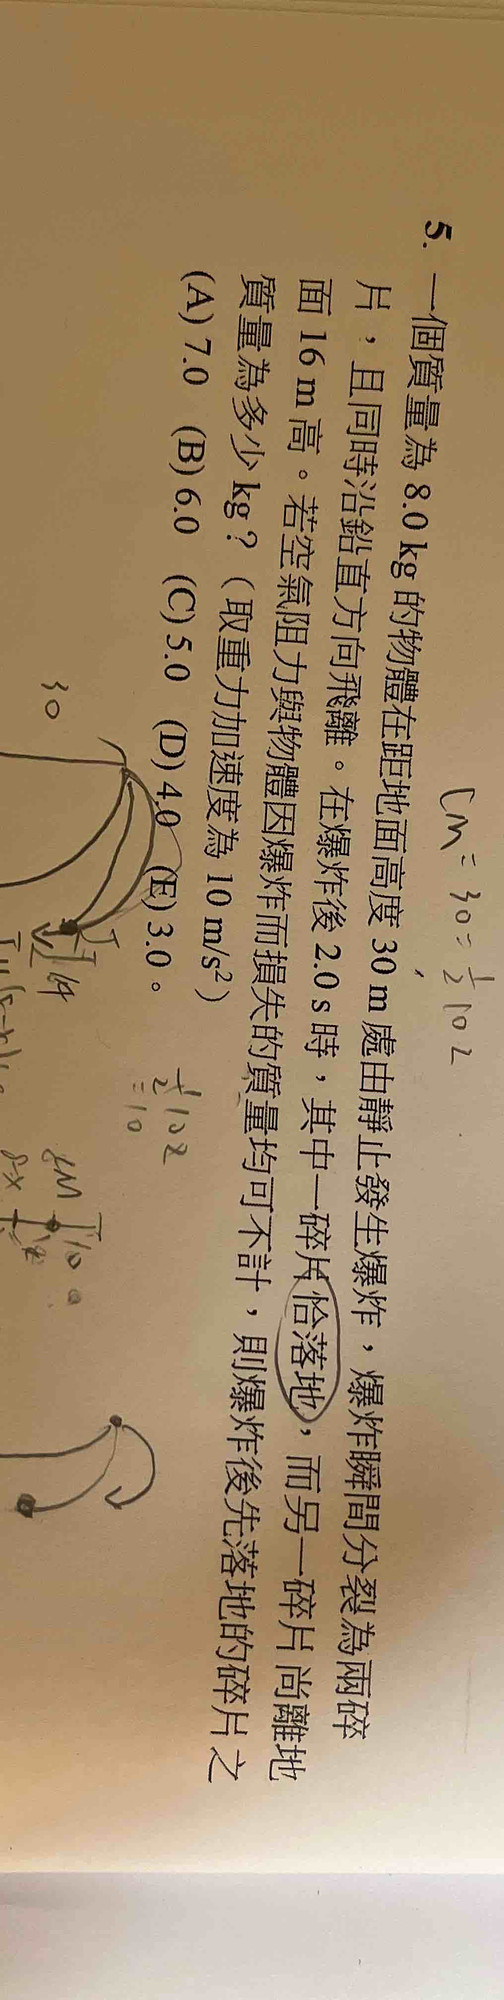 5. 一個質量為 8.0 kg 的物體在距地面高度 30 m 處由靜止發生爆炸，爆炸瞬間分裂為兩碎
片，且同時沿鉛直方向飛離。在爆炸後 2.0 s 時，其中一碎片恰落地，而另一碎片尚離地
面 16 m 高。若空氣阻力與物體因爆炸而損失的質量均可不計，則爆炸後先落地的碎片之
質量為多少 kg？（取重力加速度為 10 m/s²）
(A) 7.0 (B) 6.0 (C) 5.0 (D) 4.0 (E) 3.0。
30